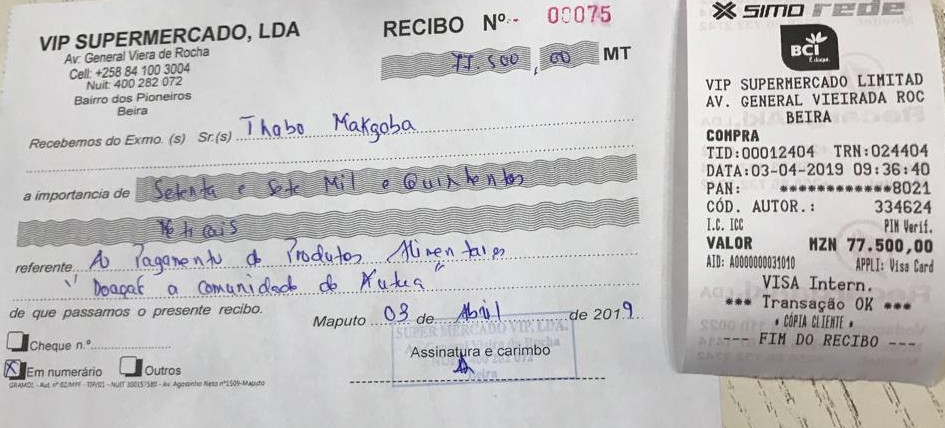 VIP SUPERMERCADO, LDA
Av. General Viera de Rocha
Cell: +258 84 100 3004
Nuit: 400 282 072
Bairro dos Pioneiros
Beira
RECIBO Nº.- 00075
77.500,00 MT
Recebemos do Exmo. (s) Sr.(s) Thabo Makgoba
a importancia de Setenta e Sete Mil e Quinhentos
Meticais
referente Ao Pagamento de Produtos Alimentares
" Doaçao a Comunidade de
de que passamos o presente recibo.
Maputo 03 de Abril de 2019
SUPER MERCADO VIP, LDA.
Av. General Vieira da Rocha
Beira
Assinatura e carimbo
Cheque n.º
X Em numerário
Outros
GRAMOL - Aut. nº 02/MPF - TIP/01 - NUIT 300157585 - Av. Agostinho Neto nº1509-Maputo
SIMO rede
BCI
É daqui.
VIP SUPERMERCADO LIMITAD
AV. GENERAL VIEIRADA ROC
BEIRA
COMPRA
TID:00012404 TRN:024404
DATA:03-04-2019 09:36:40
PAN: ************8021
CÓD. AUTOR.: 334624
I.C. ICC PIN Verif.
VALOR MZN 77.500,00
AID: A0000000031010 APPLI: Visa Card
VISA Intern.
*** Transação OK ***
* CÓPIA CLIENTE *
--- FIM DO RECIBO ---